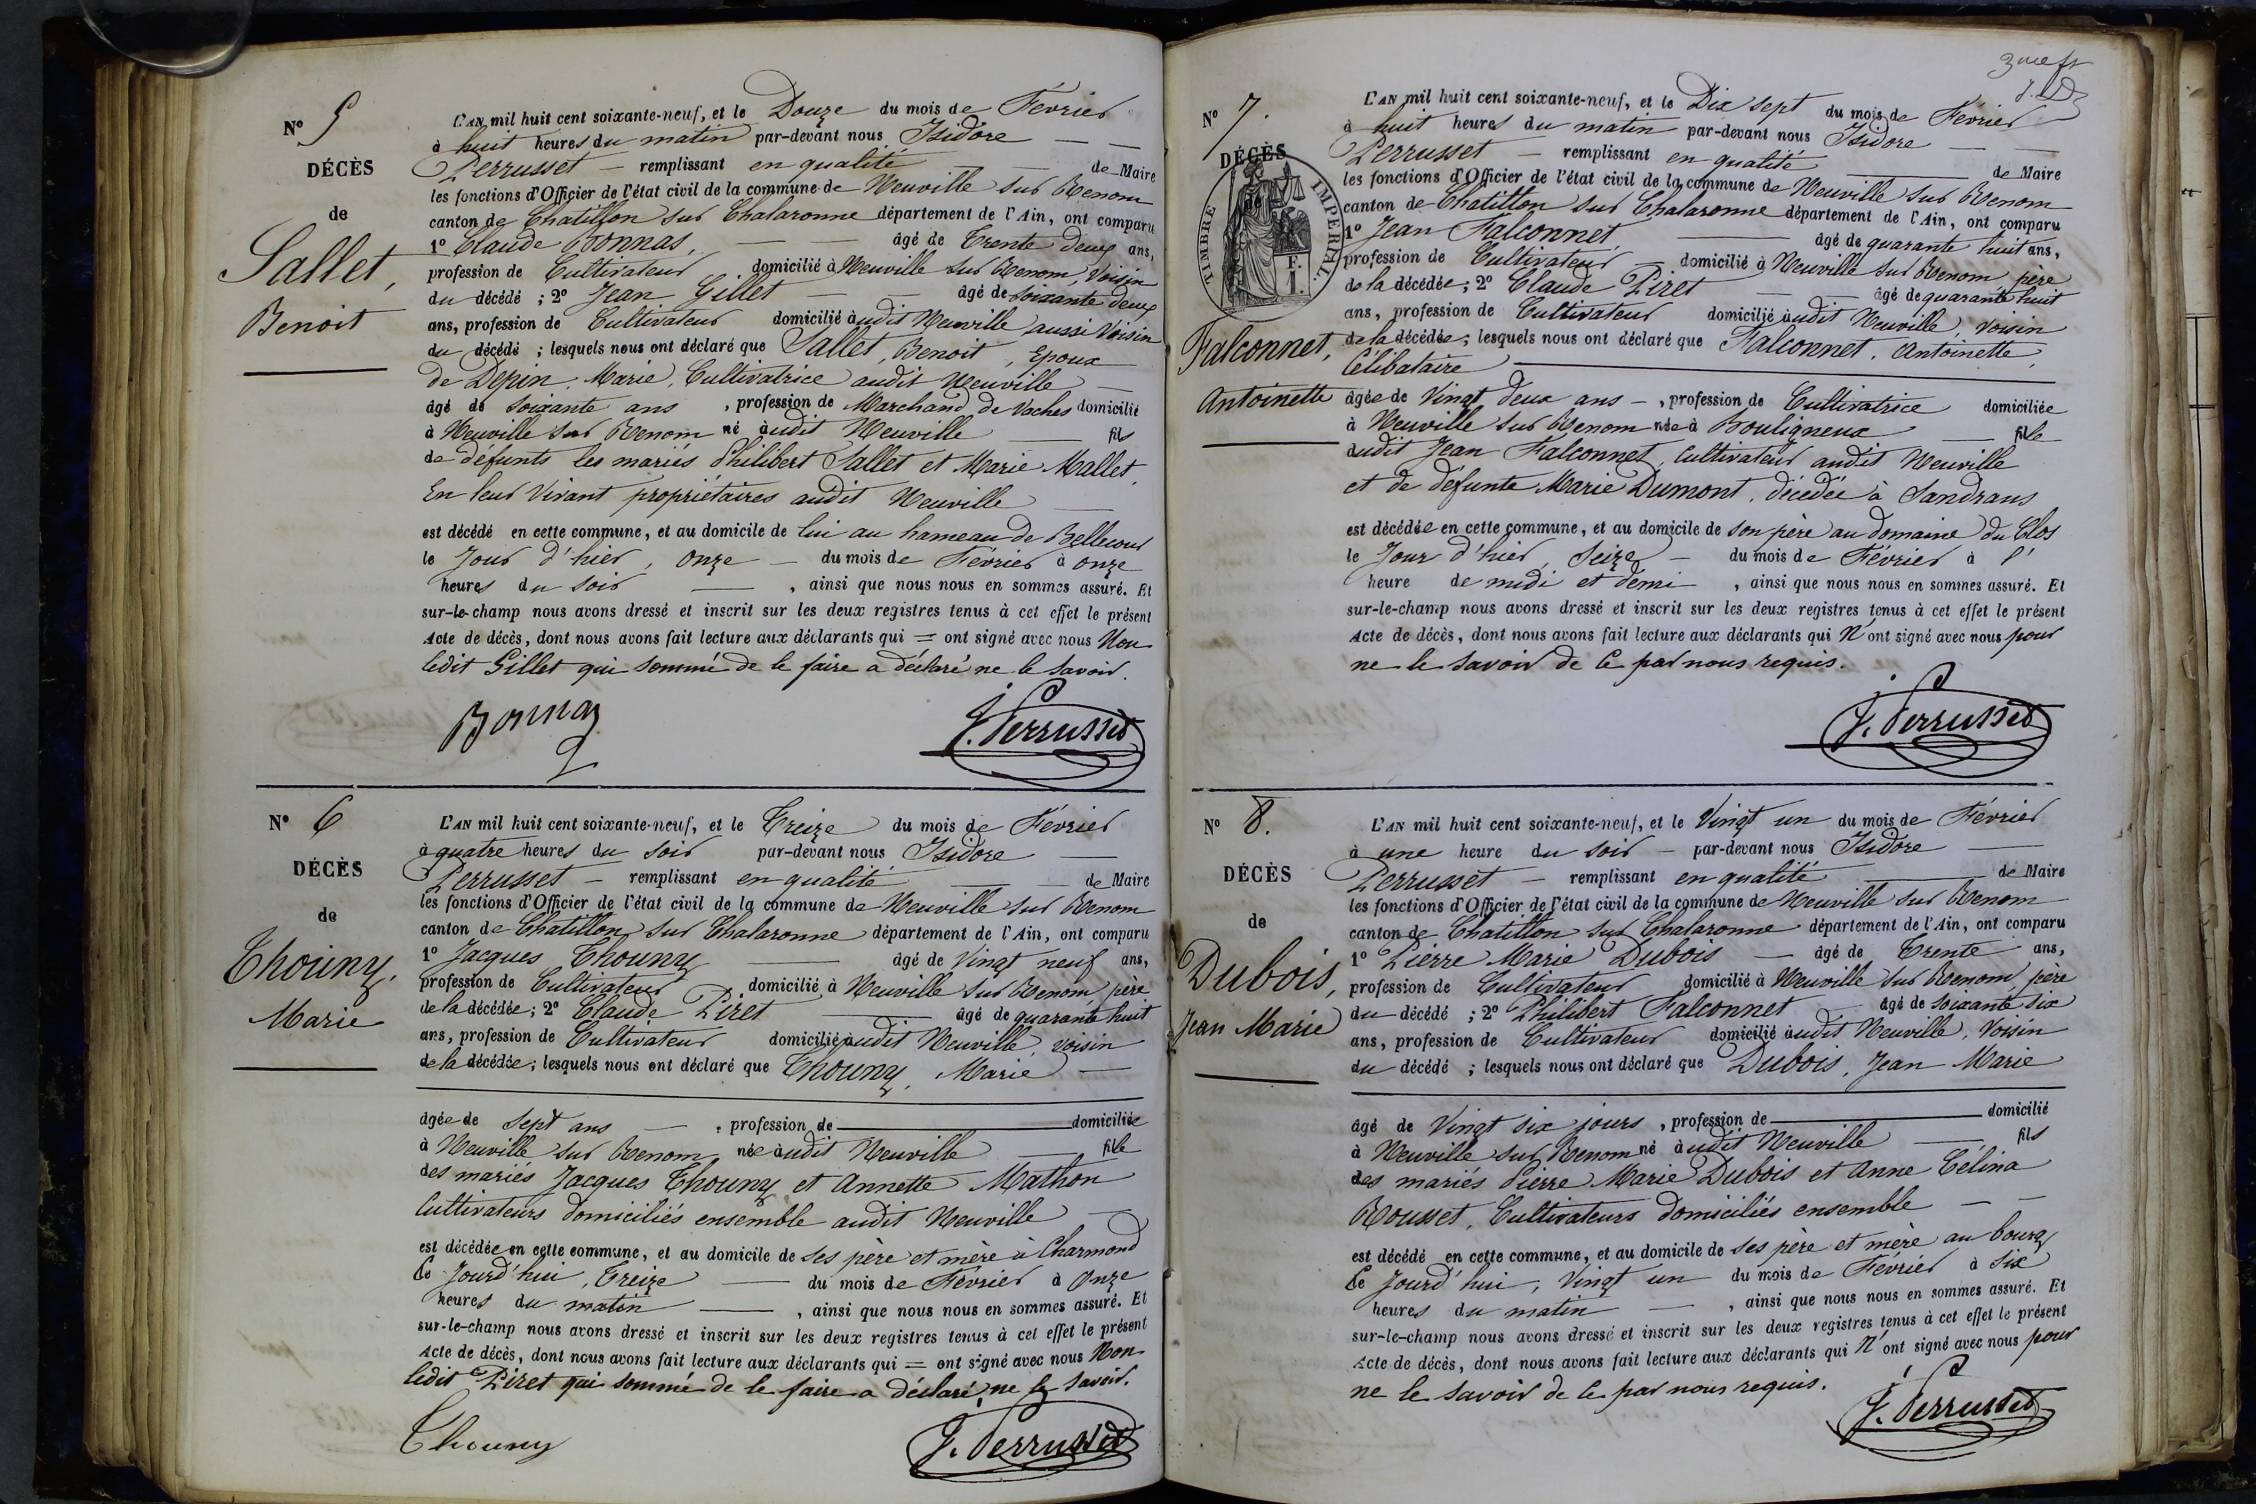 N° 5
DÉCÈS
de
Sallet,
Benoit
L'AN mil huit cent soixante-neuf, et le Douze du mois de Février
à huit heures du matin par-devant nous Isidore
Perrusset remplissant en qualité de Maire
les fonctions d'Officier de l'état civil de la commune de Neuville sur Renom
canton de Chatillon sur Chalaronne département de l'Ain, ont comparu
1° Claude Bonnas, âgé de Trente deux ans,
profession de Cultivateur domicilié à Neuville sur Renom, voisin
du décédé ; 2° Jean Gillet âgé de soixante deux
ans, profession de Cultivateur domicilié audit Neuville aussi voisin
du décédé ; lesquels nous ont déclaré que Sallet, Benoit, Epoux
de Depin, Marie, Cultivatrice audit Neuville
âgé de soixante ans , profession de Marchand de Vaches domicilié
à Neuville sur Renom né audit Neuville fils
de défunts les mariés Philibert Sallet et Marie Mallet,
En leur vivant propriétaires audit Neuville
est décédé en cette commune, et au domicile de lui au hameau de Bellecour
le Jour d'hier, onze du mois de Février à onze
heures du soir , ainsi que nous nous en sommes assuré. Et
sur-le-champ nous avons dressé et inscrit sur les deux registres tenus à cet effet le présent
Acte de décès, dont nous avons fait lecture aux déclarants qui = ont signé avec nous Non
ledit Gillet qui sommé de le faire a déclaré ne le savoir.
Bonnas
J. Perrusset
N° 6
DÉCÈS
de
Thouny,
Marie
L'AN mil huit cent soixante-neuf, et le Treize du mois de Février
à quatre heures du soir par-devant nous Isidore
Perrusset remplissant en qualité de Maire
les fonctions d'Officier de l'état civil de la commune de Neuville sur Renom
canton de Chatillon sur Chalaronne département de l'Ain, ont comparu
1° Jacques Thouny âgé de Vingt neuf ans,
profession de Cultivateur domicilié à Neuville sur Renom, père
de la décédée ; 2° Claude Piret âgé de quarante huit
ans, profession de Cultivateur domicilié audit Neuville, voisin
de la décédée ; lesquels nous ont déclaré que Thouny, Marie
âgée de sept ans , profession de domiciliée
à Neuville sur Renom née audit Neuville fille
des mariés Jacques Thouny et Annette Mathon
Cultivateurs domiciliés ensemble audit Neuville
est décédée en cette commune, et au domicile de ses père et mère à Charmond
le Jourd'hui, Treize du mois de Février à Onze
heures du matin , ainsi que nous nous en sommes assuré. Et
sur-le-champ nous avons dressé et inscrit sur les deux registres tenus à cet effet le présent
Acte de décès, dont nous avons fait lecture aux déclarants qui = ont signé avec nous Non
ledit Piret qui sommé de le faire a déclaré ne le savoir.
Thouny
J. Perrusset
N° 7.
DÉCÈS
de
TIMBRE IMPERIAL
F.
1.
Falconnet,
Antoinette
L'AN mil huit cent soixante-neuf, et le Dix sept du mois de Février
à huit heures du matin par-devant nous Isidore
Perrusset remplissant en qualité de Maire
les fonctions d'Officier de l'état civil de la commune de Neuville sur Renom
canton de Chatillon sur Chalaronne département de l'Ain, ont comparu
1° Jean Falconnet âgé de quarante huit ans,
profession de Cultivateur domicilié à Neuville sur Renom, père
de la décédée ; 2° Claude Piret âgé de quarante huit
ans, profession de Cultivateur domicilié audit Neuville, voisin
de la décédée ; lesquels nous ont déclaré que Falconnet, Antoinette,
Célibataire
âgée de Vingt deux ans , profession de Cultivatrice domiciliée
à Neuville sur Renom née à Bouligneux fille
dudit Jean Falconnet, Cultivateur audit Neuville
et de défunte Marie Dumont, décédée à Sandrans
est décédée en cette commune, et au domicile de son père au domaine du Clos
le Jour d'hier, Seize du mois de Février à l'
heure de midi et demi , ainsi que nous nous en sommes assuré. Et
sur-le-champ nous avons dressé et inscrit sur les deux registres tenus à cet effet le présent
Acte de décès, dont nous avons fait lecture aux déclarants qui N'ont signé avec nous pour
ne le savoir de ce par nous requis.
J. Perrusset
N° 8.
DÉCÈS
de
Dubois,
Jean Marie
L'AN mil huit cent soixante-neuf, et le Vingt un du mois de Février
à une heure du soir par-devant nous Isidore
Perrusset remplissant en qualité de Maire
les fonctions d'Officier de l'état civil de la commune de Neuville sur Renom
canton de Chatillon sur Chalaronne département de l'Ain, ont comparu
1° Pierre Marie Dubois âgé de Trente ans,
profession de Cultivateur domicilié à Neuville sur Renom, père
du décédé ; 2° Philibert Falconnet âgé de soixante six
ans, profession de Cultivateur domicilié audit Neuville, voisin
du décédé ; lesquels nous ont déclaré que Dubois, Jean Marie
âgé de Vingt six jours , profession de domicilié
à Neuville sur Renom né audit Neuville fils
des mariés Pierre Marie Dubois et Anne Célina
Rousset, Cultivateurs domiciliés ensemble
est décédé en cette commune, et au domicile de ses père et mère au bourg
le Jourd'hui, Vingt un du mois de Février à six
heures du matin , ainsi que nous nous en sommes assuré. Et
sur-le-champ nous avons dressé et inscrit sur les deux registres tenus à cet effet le présent
Acte de décès, dont nous avons fait lecture aux déclarants qui N'ont signé avec nous pour
ne le savoir de ce par nous requis.
J. Perrusset